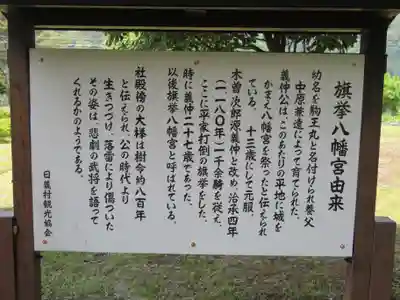 旗挙八幡宮由来
幼名を駒王丸と名付けられ養父
中原兼遠によって育てられた、
義仲公は、このあたりの平地に城を
かまえ八幡宮を祭ったと伝えられ
ている。 十三歳にして元服、
木曽次郎源義仲と改め、治承四年
(一一八〇年)一千余騎を従え、
ここに平家打倒の旗挙をした。
時に義仲二十七歳であった。
以後旗挙八幡宮と呼ばれている。
社殿傍の大欅は樹令約八百年
と伝えられ、公の時代より
生きつづけ、落雷により傷ついた
その姿は、悲劇の武将を語って
くれるかのようである。
日義村観光協会